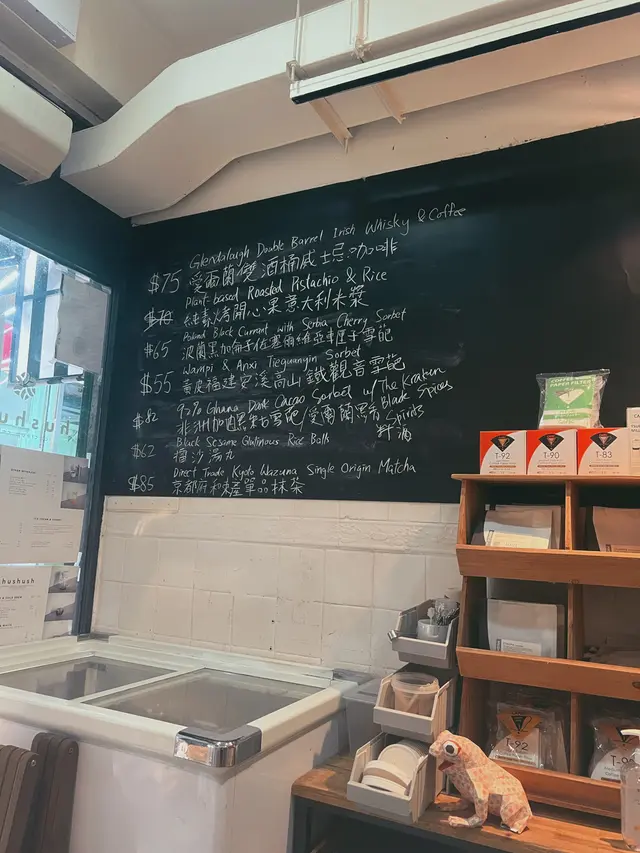 Glendalough Double Barrel Irish Whisky & Coffee
$75 愛爾蘭雙酒桶威士忌咖啡
Plant-based Roasted Pistachio & Rice
$70 純素烤開心果意大利米漿
Poland Black Currant with Serbia Cherry Sorbet
$65 波蘭黑加侖子佐塞爾維亞車厘子雪葩
Wampi & Anxi Tieguanyin Sorbet
$55 黃皮福建安溪高山鐵觀音雪葩
92% Ghana Dark Cacao Sorbet w/ The Kraken Black Spices Spirits
$82 非洲加納黑朱古雪葩/愛爾蘭黑香料酒
Black Sesame Glutinous Rice Balls
$62 擂沙湯丸
Direct Trade Kyoto Wazuka Single Origin Matcha
$85 京都府和束產單品抹茶
COFFEE CONE
PAPER FILTER
T-92
T-90
T-83
hushush
hushush
T-92